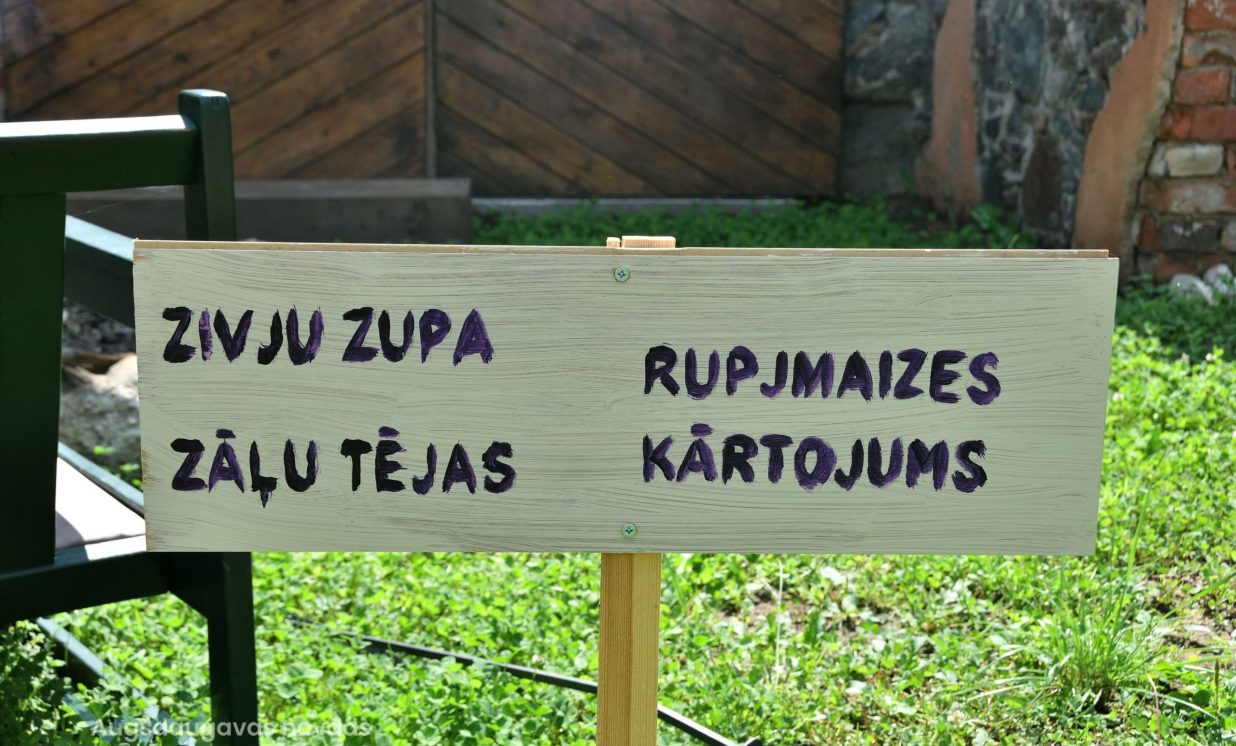 ZIVJU ZUPA
ZĀĻU TĒJAS
RUPJMAIZES
KĀRTOJUMS
Augšdaugavas novads